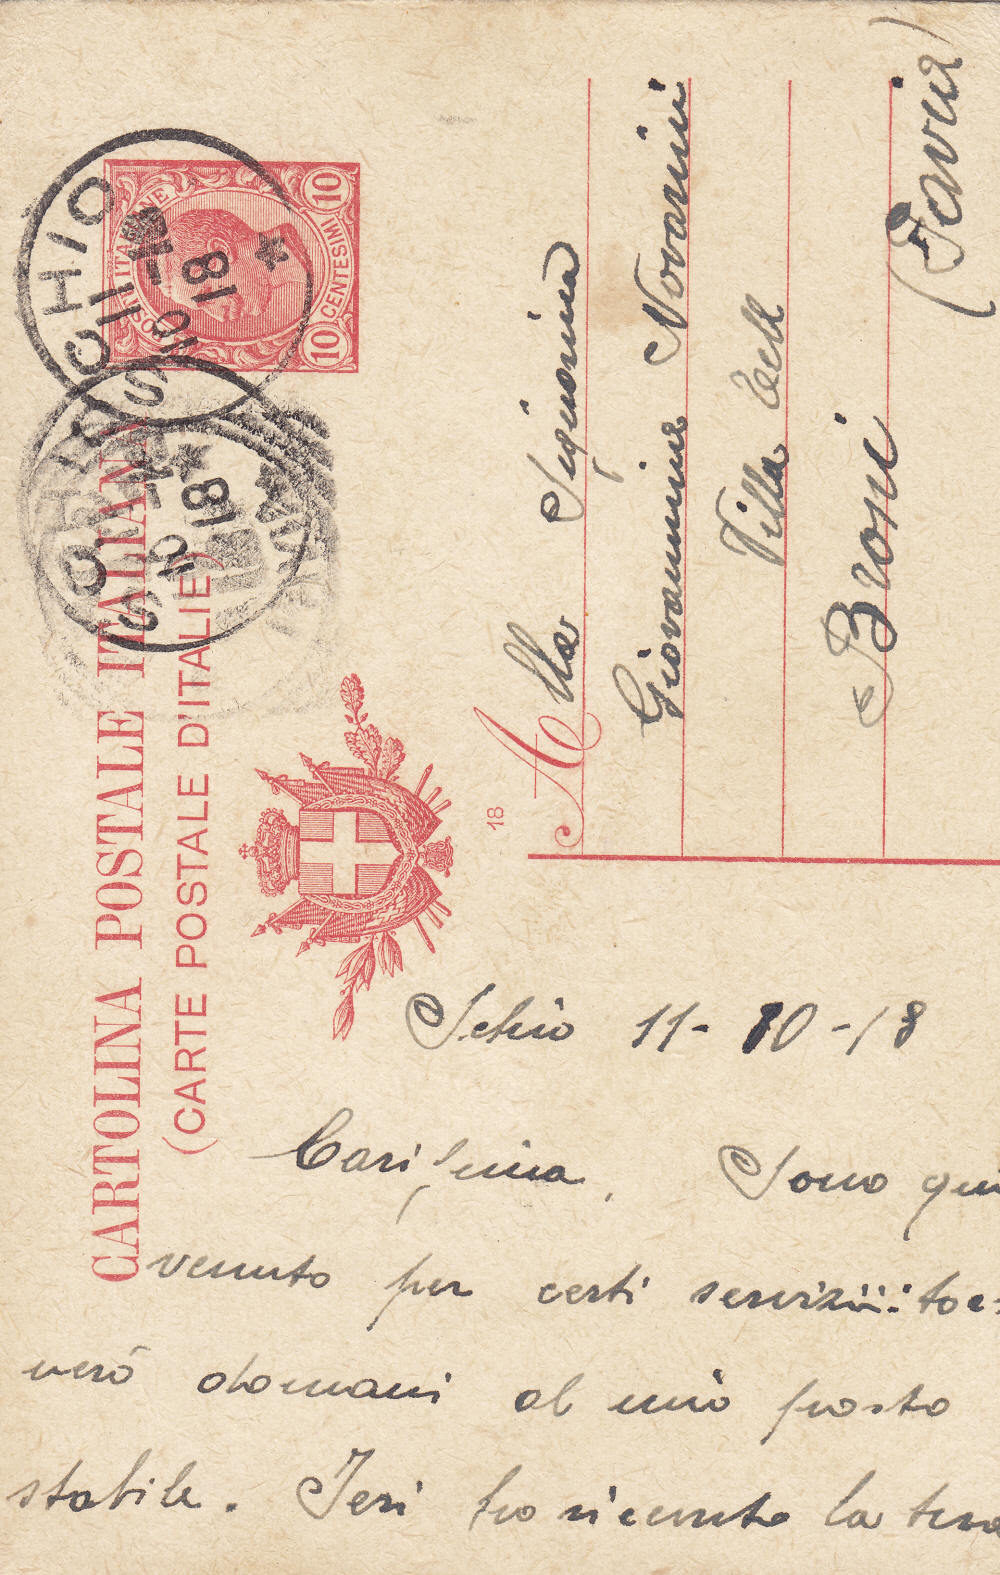 CARTOLINA POSTALE ITALIANA
(CARTE POSTALE D'ITALIE)
POSTE ITALIANE
10 CENTESIMI 10
SCHIO
11-12
10 18
SCHIO
10 18
18
Alla Signorina
Giovannina Novarini
Villa Tell
Broni
(Pavia)
Schio 11-10-18
Carissima, Sono qui
venuto per certi servizi: tor
nerò domani al mio posto
stabile. Ieri ho ricevuto la tua